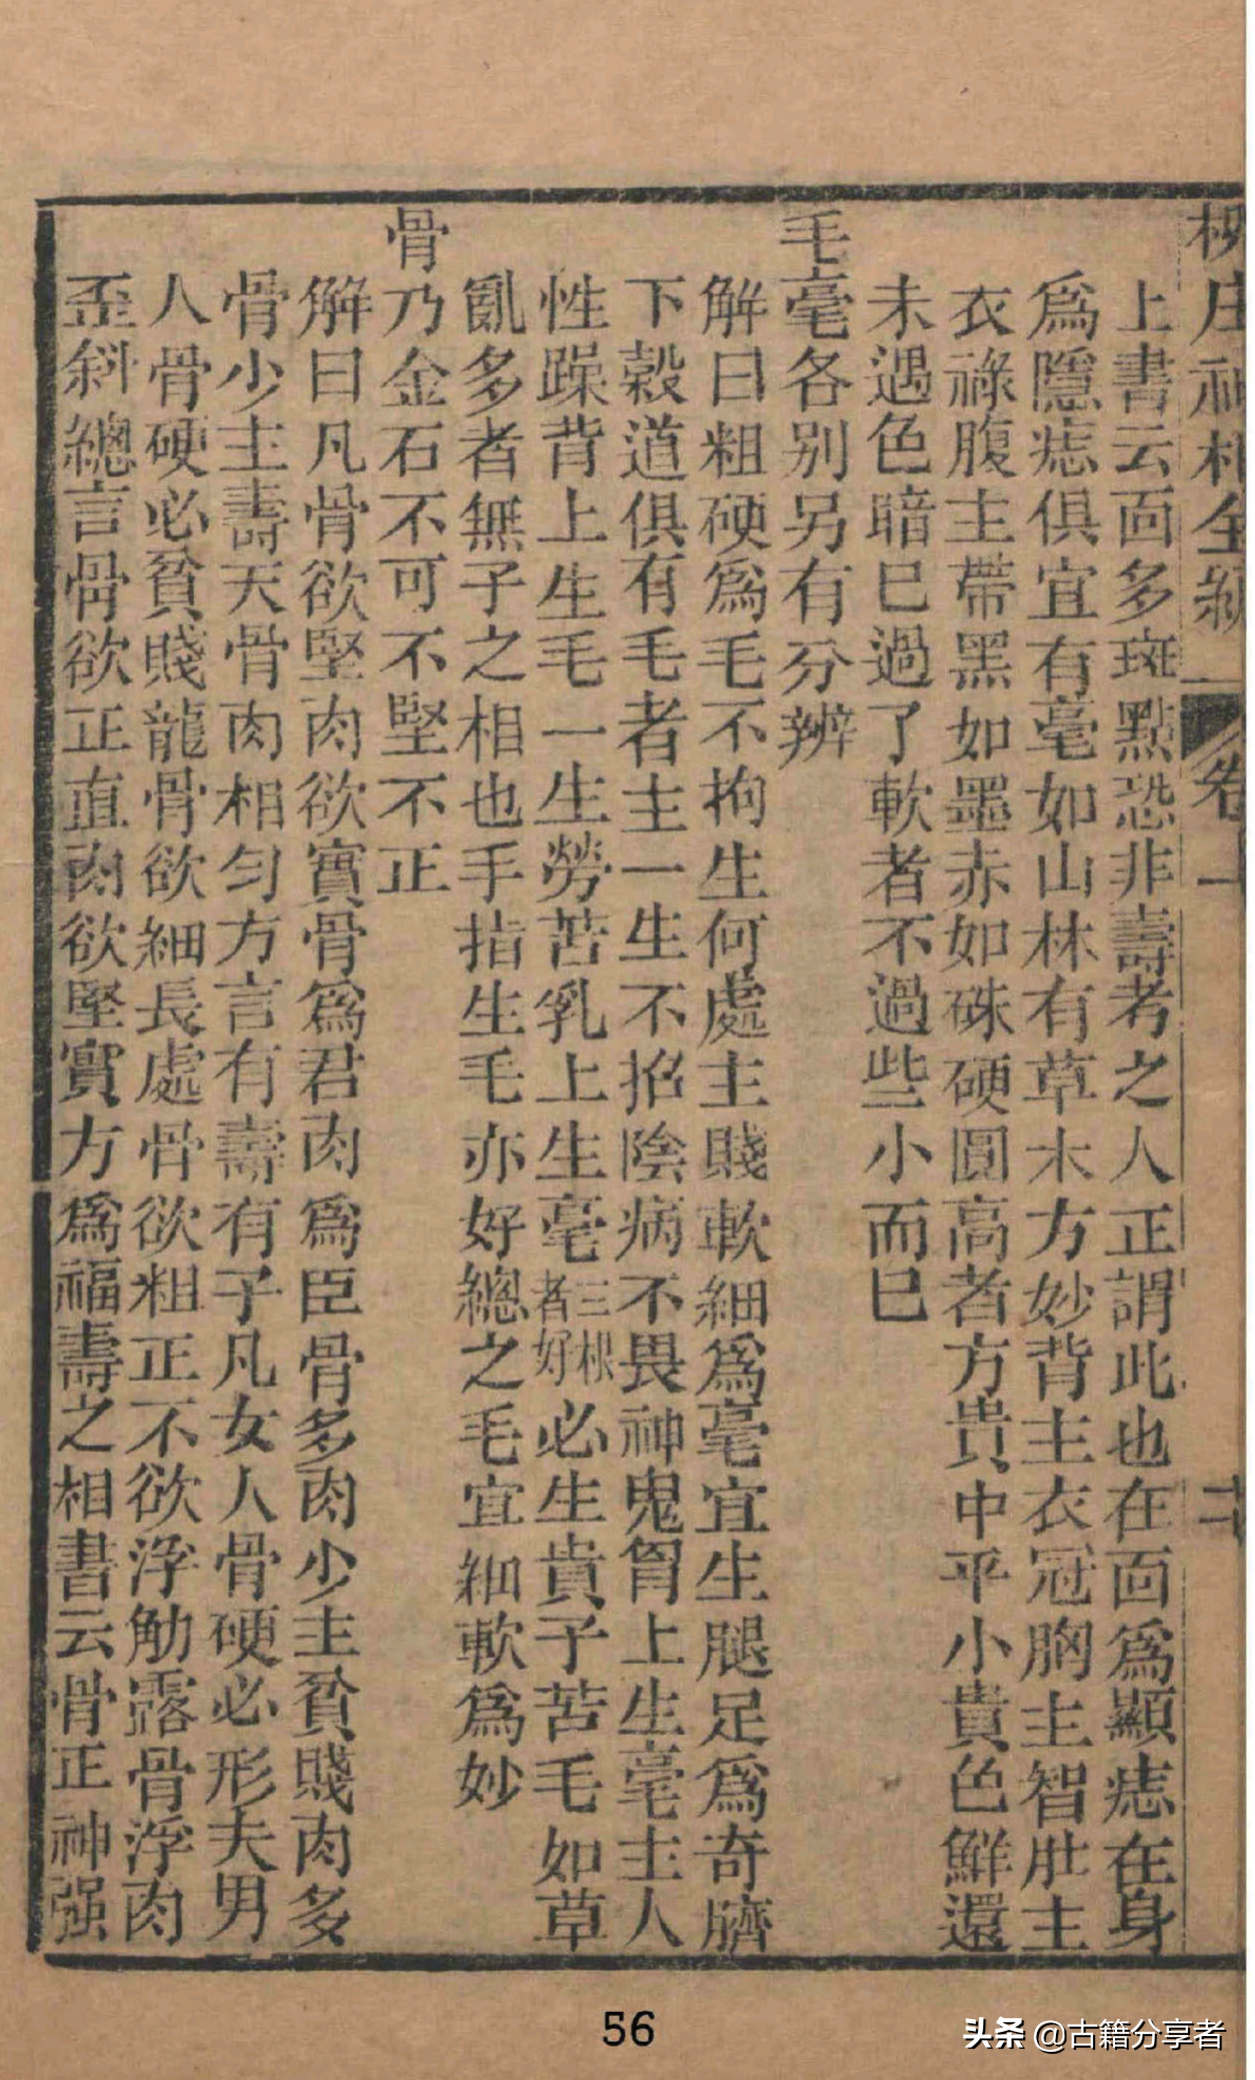 上書云面多斑點恐非壽考之人正謂此也在面爲顯痣在身
爲隱痣俱宜有毫如山林有草木方妙背主衣冠胸主智肚主
衣祿腹主帶黑如墨赤如硃硬圓高者方貴中平小貴色鮮還
未遇色暗巳過了軟者不過些小而巳
毛毫各别另有分辨
解曰粗硬爲毛不拘生何處主賤軟細爲毫宜生腿足爲奇臍
下穀道俱有毛者主一生不招陰病不畏神鬼胷上生毫主人
性躁背上生毛一生勞苦乳上生毫三根者好必生貴子苦毛如草
亂多者無子之相也手指生毛亦好總之毛宜細軟爲妙
骨乃金石不可不堅不正
解曰凡骨欲堅肉欲實骨爲君肉爲臣骨多肉少主貧賤肉多
骨少主壽夭骨肉相匀方言有壽有子凡女人骨硬必形夫男
人骨硬必貧賤龍骨欲細長處骨欲粗正不欲浮觔露骨浮肉
歪斜總言骨欲正直肉欲堅實方爲福壽之相書云骨正神强
56
头条 @古籍分享者